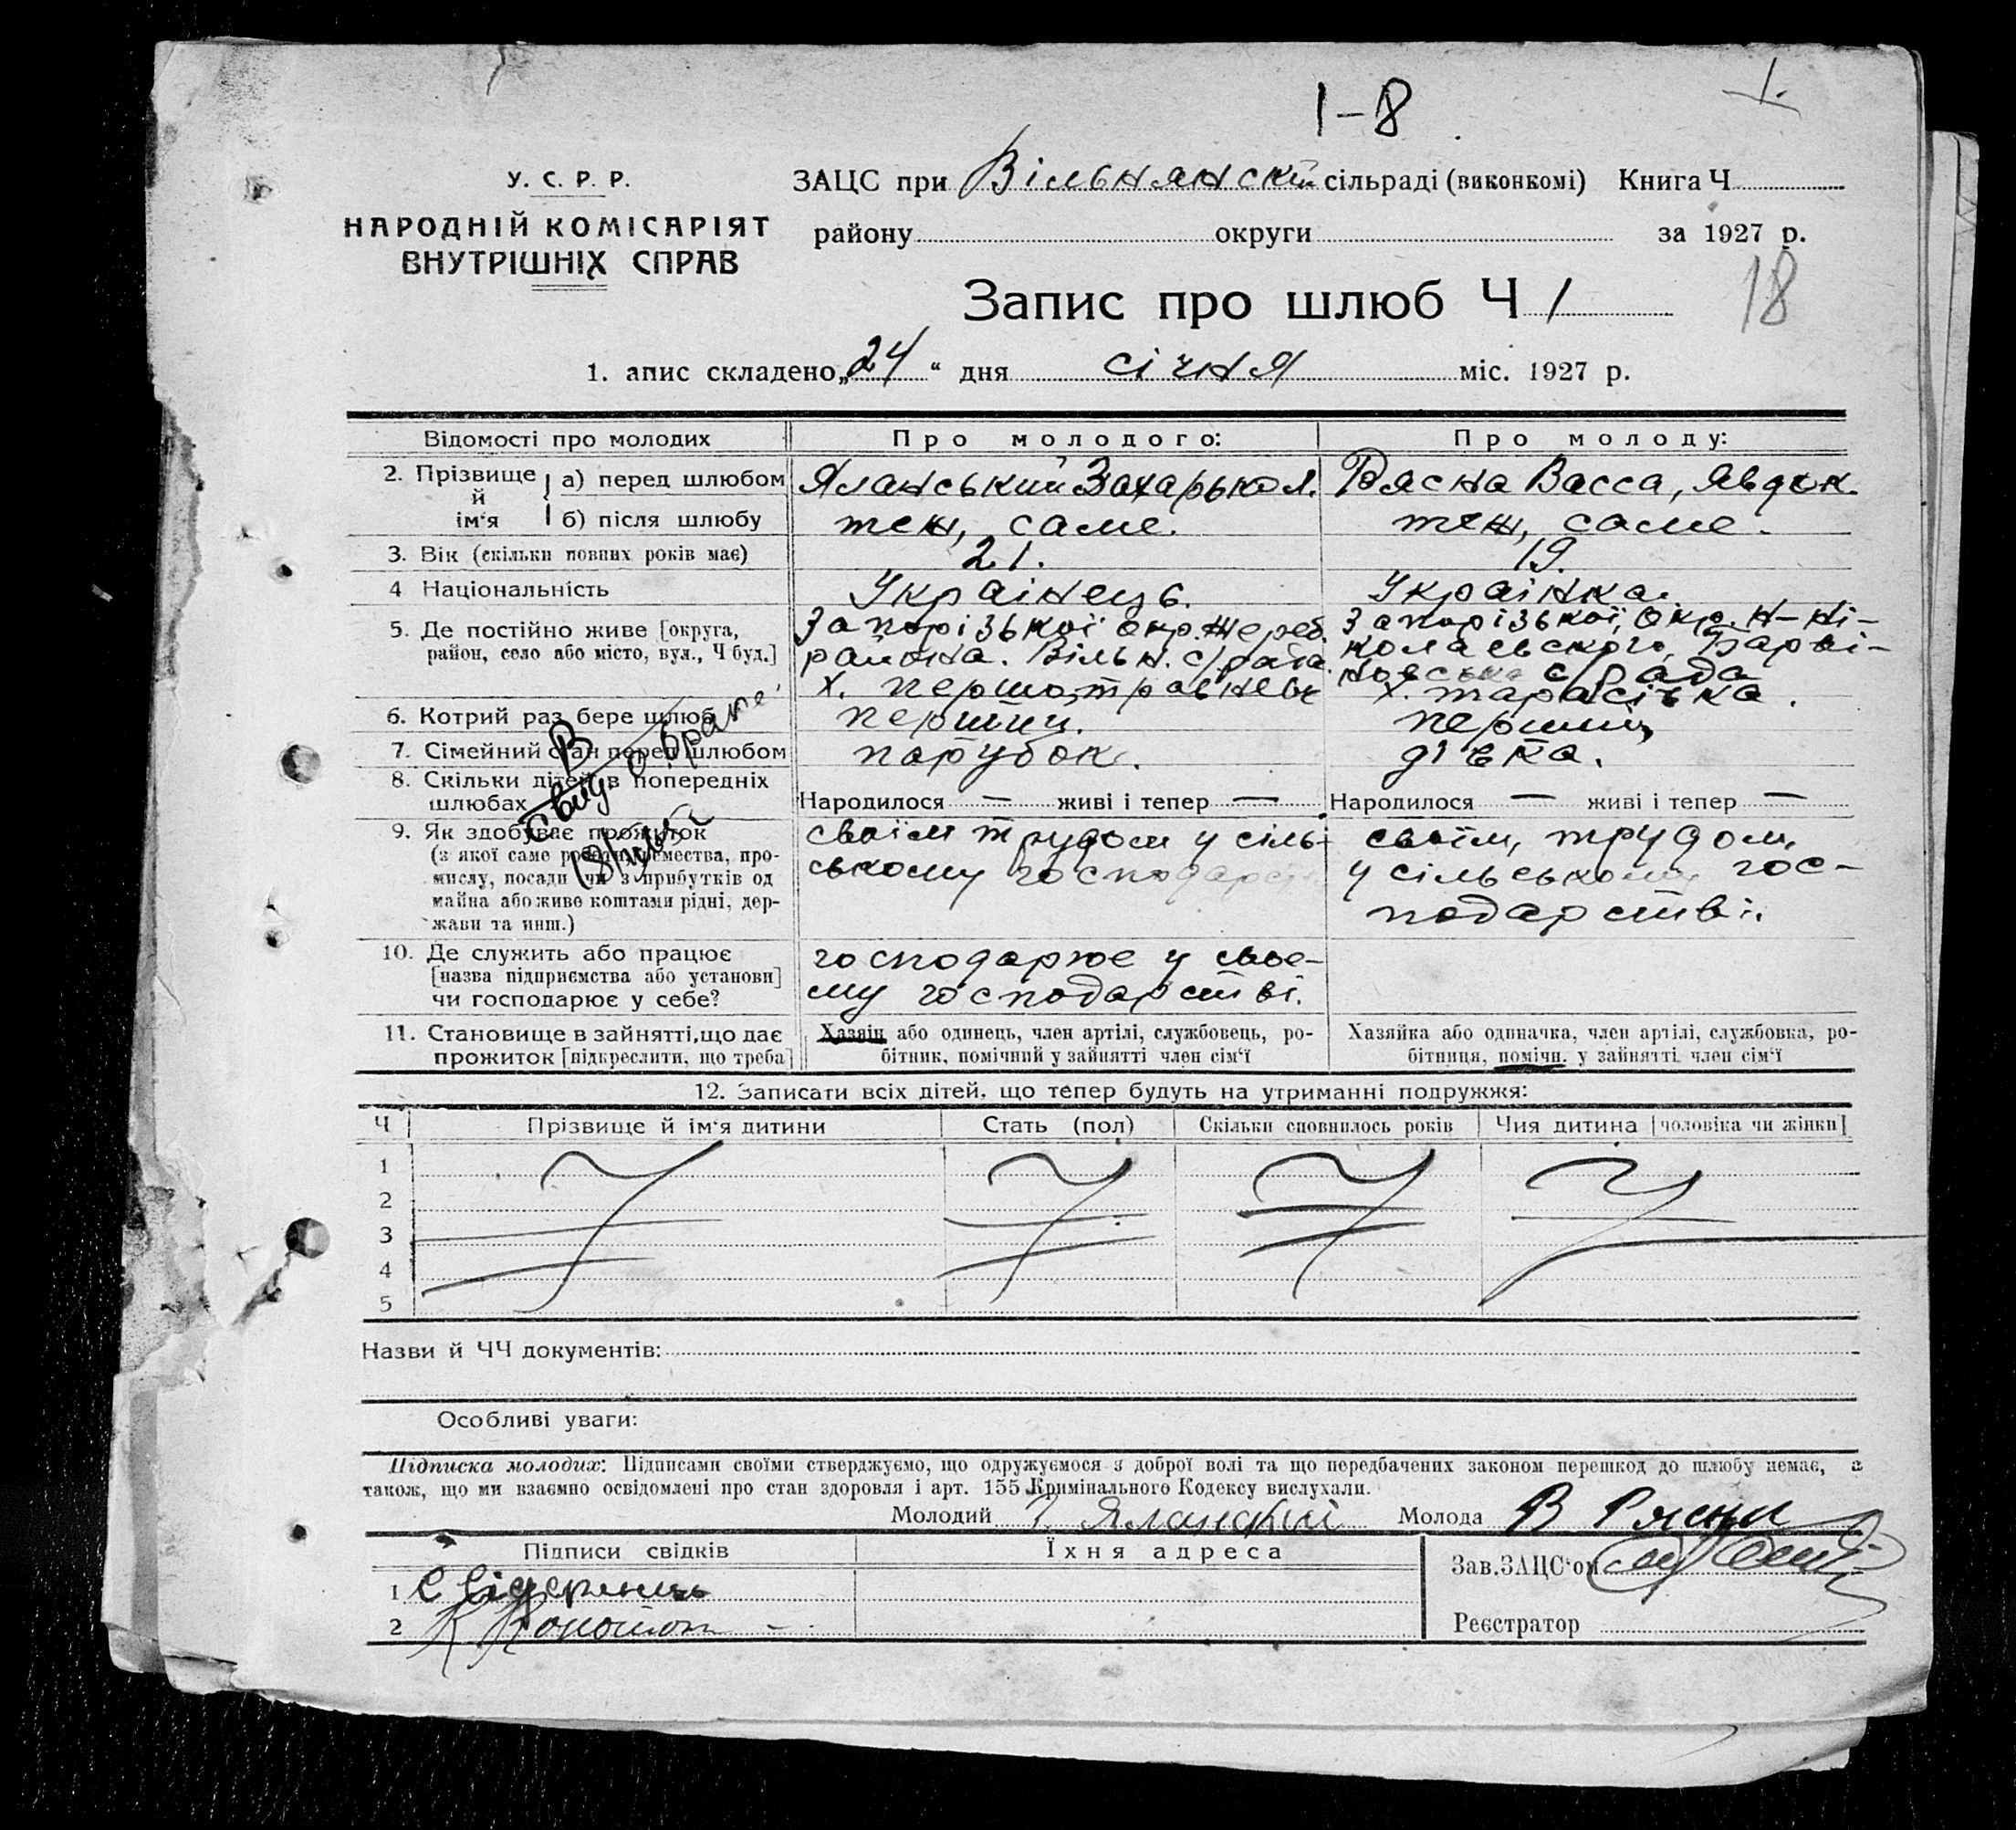 1-8
1.
У. С. Р. Р.
НАРОДНІЙ КОМІСАРІЯТ
ВНУТРІШНІХ СПРАВ
ЗАЦС при Вільнянскій сільраді (виконкомі) Книга Ч
району округи за 1927 р.
18
Запис про шлюб Ч 1
1. апис складено „24“ дня січня міс. 1927 р.
Відомості про молодих Про молодого: Про молоду:
2. Прізвище й ім‘я а) перед шлюбом Яланський Захарько Я. Рясна Васса, Явдок.
б) після шлюбу теж, саме. теж, саме.
3. Вік (скільки повних років має) 21. 19.
4 Національність Українець. Українка.
5. Де постійно живе [округа, Запорізької окр. Жереб. Запорізької, Окр. Н-Ні-
район, село або місто, вул., Ч буд.] района. Вільн. с/рада колаевського, Барві-
х. першотравневе новська с/рада
х. тарасівка.
6. Котрий раз бере шлюб перший. перший,
7. Сімейний стан перед шлюбом парубок. дівка.
8. Скільки дітей в попередніх
шлюбах Народилося — живі і тепер — Народилося — живі і тепер —
9. Як здобуває прожиток своїм трудом у сіль- своїм, трудом,
(з якої саме роботи, ремества, про- ському господарс у сільському гос-
мислу, посади чи з прибутків од подарстві.
майна або живе коштами рідні, дер-
жави та инш.)
10. Де служить або працює господарює у свое-
[назва підприємства або установи] му господарстві.
чи господарює у себе?
11. Становище в зайнятті, що дає Хазяін або одинець, член артілі, службовець, ро- Хазяйка або одиначка, член артілі, службовка, ро-
прожиток [підкреслити, що треба] бітник, помічний у зайнятті член сім‘ї бітниця, помічн. у зайнятті член сім‘ї
12. Записати всіх дітей, що тепер будуть на утриманні подружжя:
Ч Прізвище й ім‘я дитини Стать (пол) Скільки сповнилось років Чия дитина [чоловіка чи жінки]
1
2
3
4
5
Назви й ЧЧ документів:
Особливі уваги:
Підписка молодих: Підписами своїми стверджуємо, що одружуємося з доброї волі та що передбачених законом перешкод до шлюбу немає, а
також, що ми взаємно освідомлені про стан здоровля і арт. 155 Кримінального Кодексу вислухали.
Молодий З Яланский Молода В Рясна
Підписи свідків Їхня адреса Зав.ЗАЦС‘ом
1
2 К Реєстратор